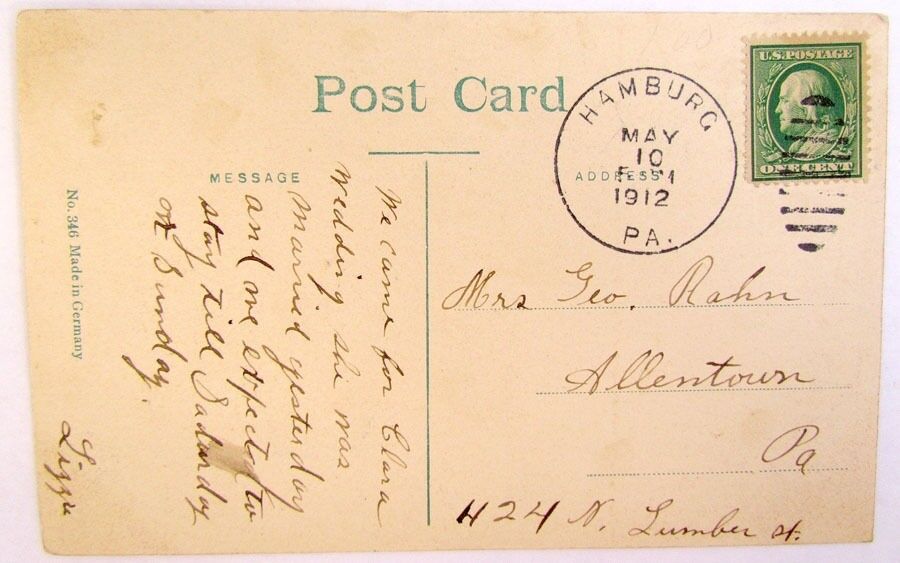 Post Card
MESSAGE
ADDRESS
No. 346 Made in Germany
HAMBURG
MAY
10
1912
PA.
U.S. POSTAGE
ONE CENT
We came for Clara
wedding she was
married yesterday
and we expect to
stay till Saturday
or Sunday.
Lizzie
Mrs Geo. Rahn
Allentown
Pa
424 N. Lumber st.